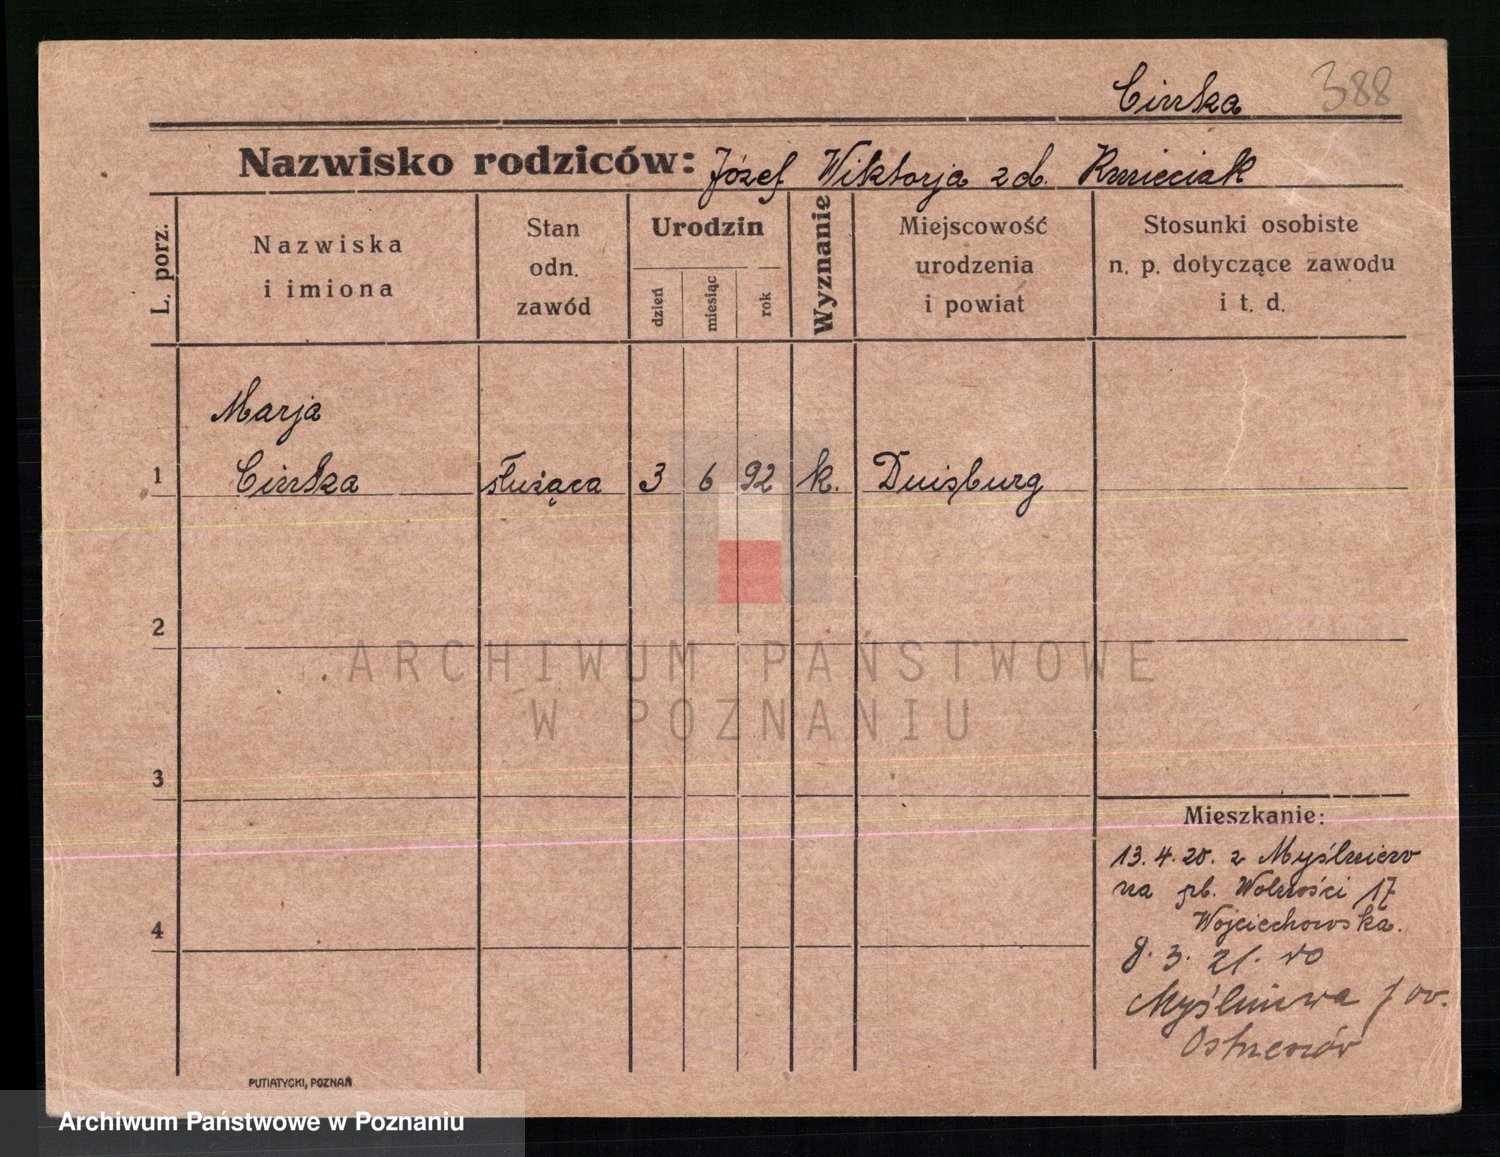 Cinska 388
Nazwisko rodziców: Józef Wiktorja z d. Kmieciak
L. porz.
Nazwiska
i imiona
Stan
odn.
zawód
Urodzin
dzień
miesiąc
rok
Wyznanie
Miejscowość
urodzenia
i powiat
Stosunki osobiste
n. p. dotyczące zawodu
i t. d.
Marja
1 Cinska służąca 3 6 92 k. Duisburg
2
3
4
Mieszkanie:
13.4.20. z Myślniew
na pl. Wolności 17
Wojciechowska.
8. 3. 21. do
Myślniewa
PUTIATYCKI, POZNAŃ
ARCHIWUM PAŃSTWOWE
W POZNANIU
Archiwum Państwowe w Poznaniu